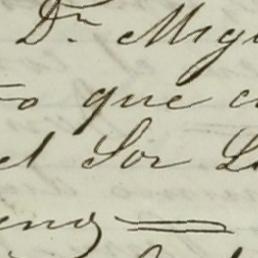 Dn. Migu
to que c
el Sor L
eno